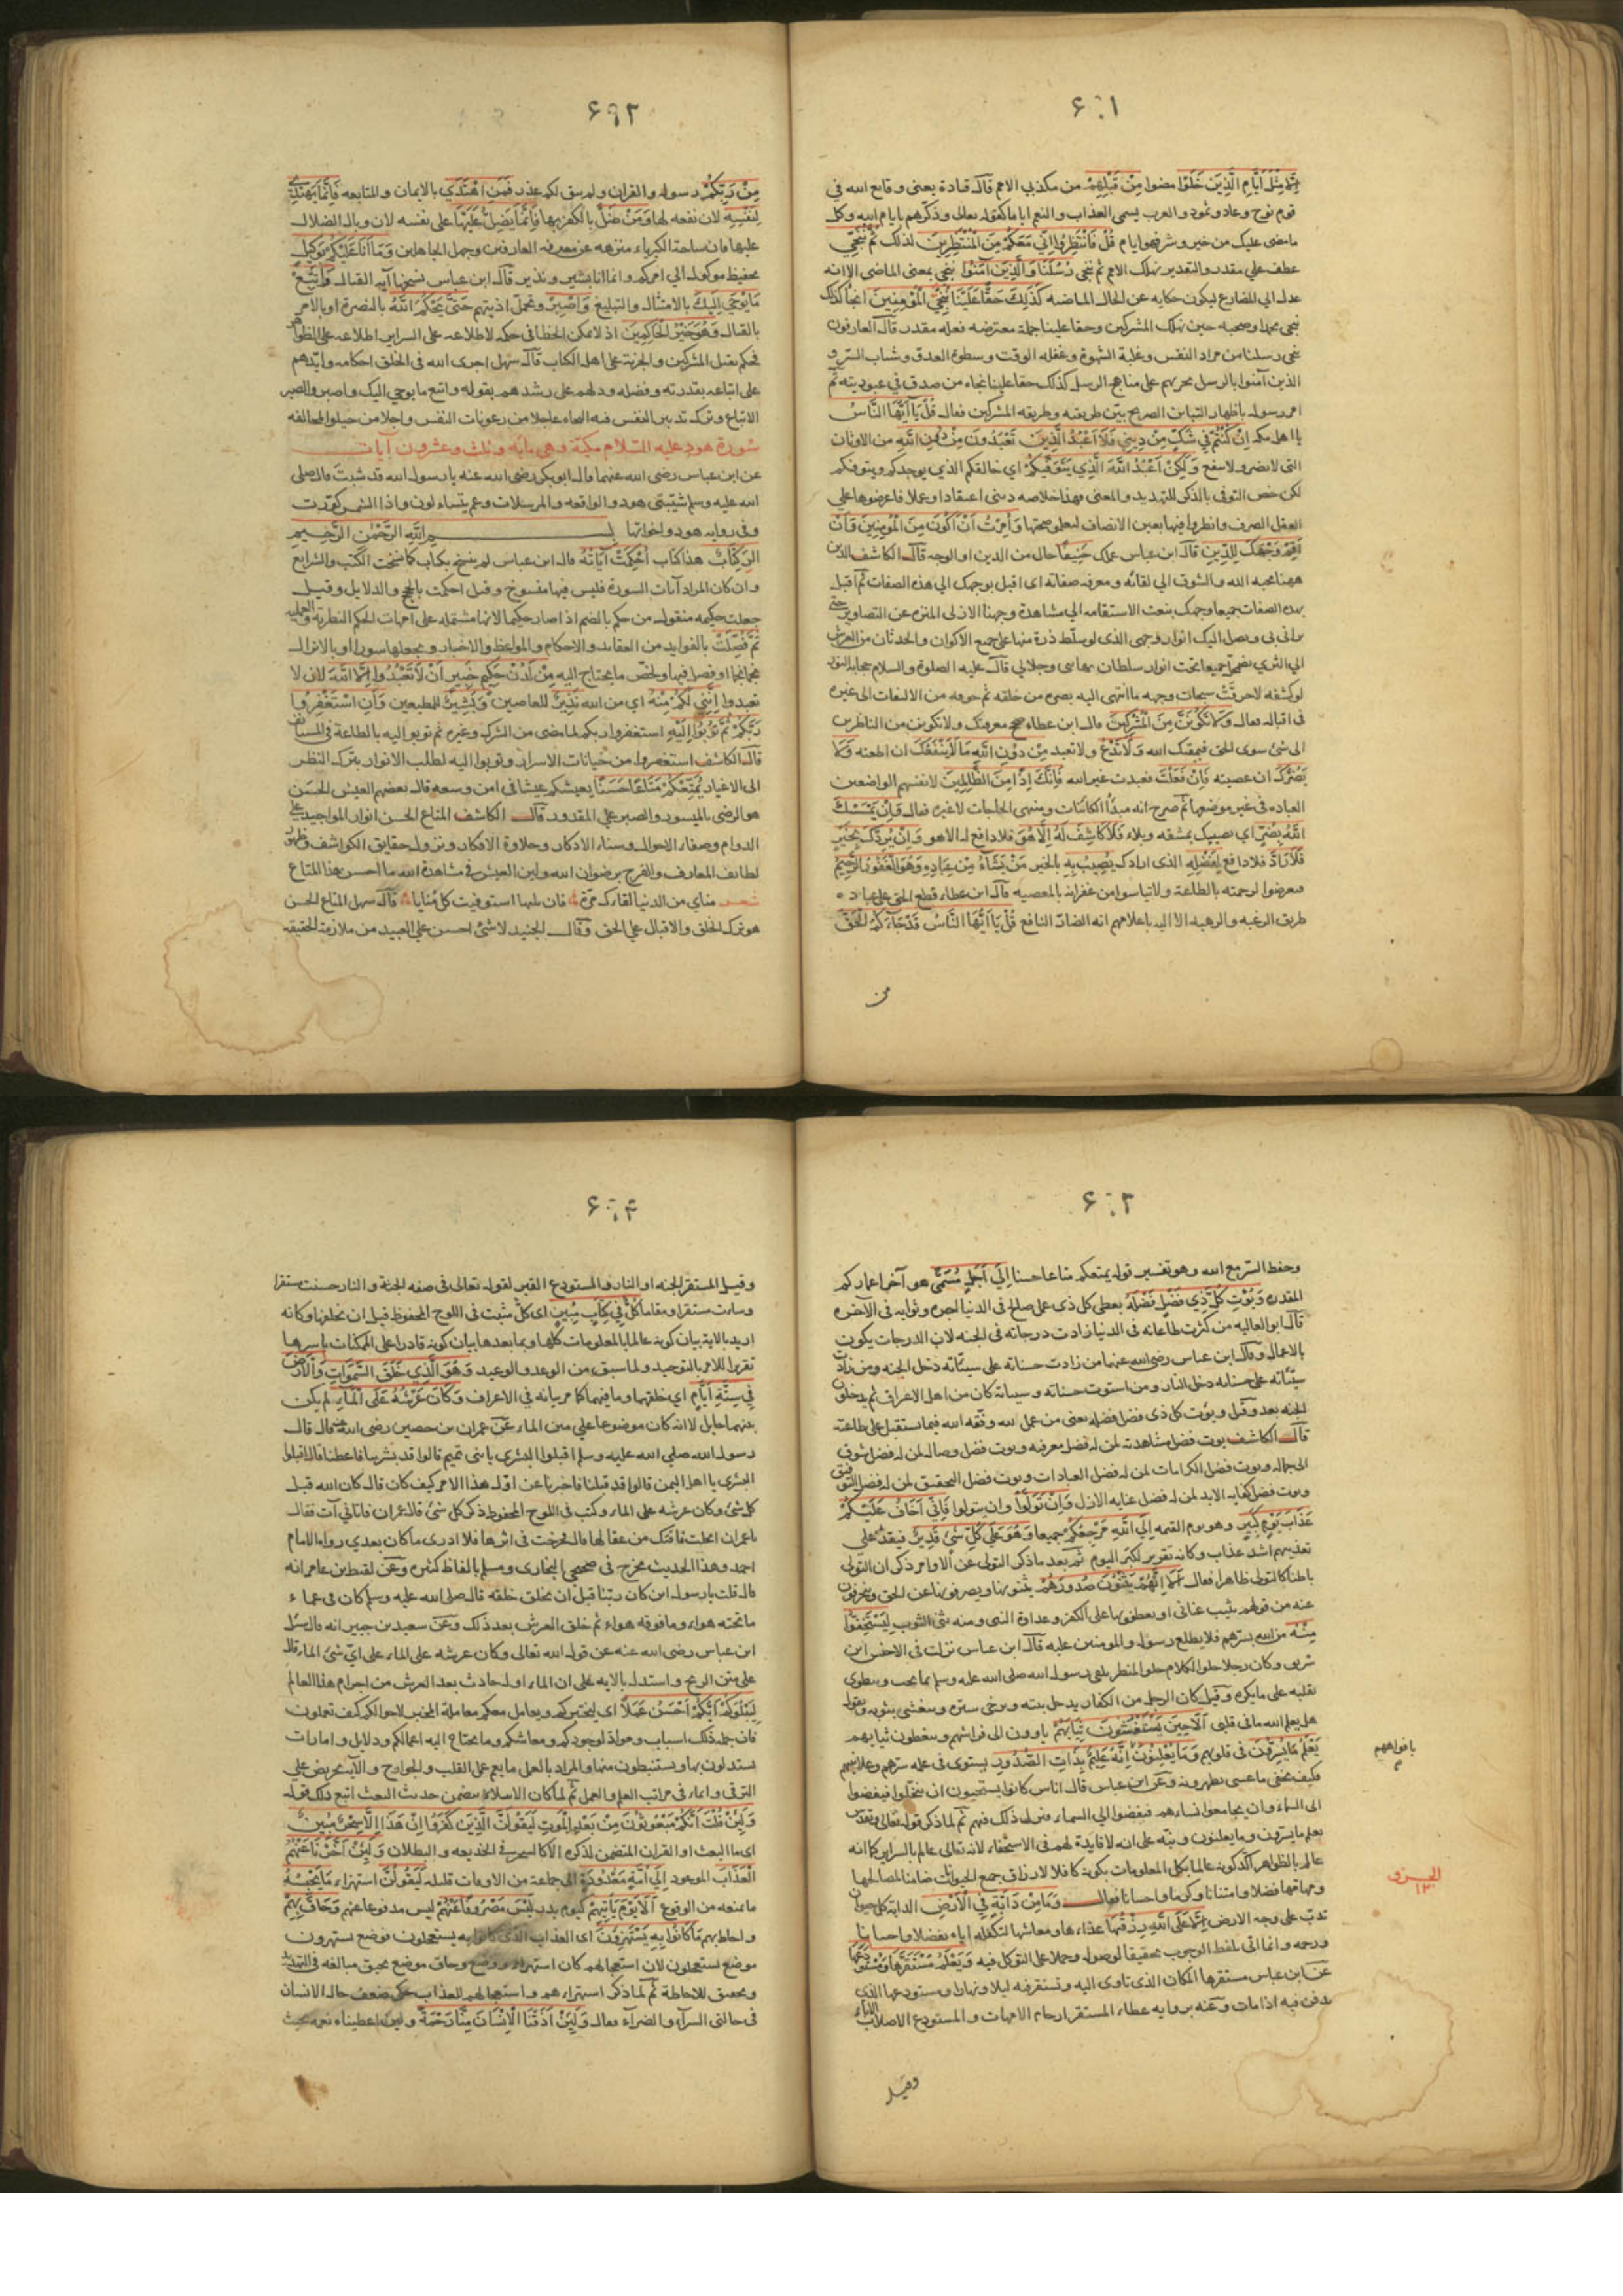 ۶۰۱
اِلَّا مِثْلَ اَيَّامِ الَّذِينَ خَلَوْا مضوا مِنْ قَبْلِهِمْ من مكذبي الامم قال قتادة يعني وقايع الله في
قوم نوح وعاد وثمود والعرب يسمى العذاب والنعم اياما كقوله تعالى وذكرهم بايام الله وكل
ما مضى عليك من خير وشر فهو ايام قُلْ فَانْتَظِرُوا اِنِّي مَعَكُمْ مِنَ الْمُنْتَظِرِينَ لذلك ثُمَّ نُنَجِّي
عطف على مقدر والتقدير نهلك الامم ثم ننجي رُسُلَنَا وَالَّذِينَ آمَنُوا ننجي بمعنى الماضي الا انه
عدل الى المضارع ليكون حكاية عن الحال الماضية كَذَلِكَ حَقًّا عَلَيْنَا نُنْجِ الْمُؤْمِنِينَ انجاء كذلك
ننجي محمدا وصحبه حين نهلك المشركين وحقا علينا جملة معترضة فعله مقدر قال العارفون
ننجي رسلنا من مراد النفس وغلبة الشهوة وغفلة الوقت وسطوة العدو وشتات السر و
الذين آمنوا بالرسل نجريهم على مناهج الرسل كذلك حقا علينا نجاة من صدق في عبوديته ثم
امر رسوله باظهار التباين الصريح بين طريقته وطريقة المشركين فقال قُلْ يَا اَيُّهَا النَّاسُ
يا اهل مكة اِنْ كُنْتُمْ فِي شَكٍّ مِنْ دِينِي فَلَا اَعْبُدُ الَّذِينَ تَعْبُدُونَ مِنْ دُونِ اللَّهِ من الاوثان
التي لا تضر ولا تنفع وَلَكِنْ اَعْبُدُ اللَّهَ الَّذِي يَتَوَفَّيكُمْ اي خالقكم الذي يوجدكم ويتوفكم
لكن خص التوفي بالذكر للتهديد والمعنى فهذا خلاصة ديني اعتقادا وعملا فاعرضوها على
العقل الصرف وانظروا فيها بعين الانصاف لتعلموا صحتها وَاُمِرْتُ اَنْ اَكُونَ مِنَ الْمُؤْمِنِينَ وَاَنْ
اَقِمْ وَجْهَكَ لِلدِّينِ قال ابن عباس عملك حَنِيفًا حال من الدين او الوجه قال الكاشف الدين
ههنا محبة الله والشوق الى لقائه ومعرفة صفاته اى اقبل بوجهك الى هذه الصفات ثم اقبل
بهذه الصفات جميعا وجهك بنعت الاستقامة الى مشاهدة وجهنا الازلي المنزه عن التصاوير حتى
تراني بي ويصل اليك انوار وجهي الذي لو سلط ذرة منها على جميع الاكوان والحدثان من العرش
الى الثرى يضمحل جميعا تحت انوار سلطان بهائى وجلالي قال عليه الصلوة والسلام حجابه النور
لو كشفه لاحرقت سبحات وجهه ما انتهى اليه بصره من خلقه ثم خوفه من الالتفات الى غيره
في اقباله فقال وَلَا تَكُونَنَّ مِنَ الْمُشْرِكِينَ قال ابن عطاء صحح معرفتك ولا تكونن من الناظرين
الى شئ سوى الحق فيمقتك الله وَلَا تَدْعُ ولا تعبد مِنْ دُونِ اللَّهِ مَا لَا يَنْفَعُكَ ان اطعته وَلَا
يَضُرُّكَ ان عصيته فَاِنْ فَعَلْتَ فعبدت غير الله فَاِنَّكَ اِذًا مِنَ الظَّالِمِينَ لانفسهم الواضعين
العبادة في غير موضعها ثم صرح انه مبدأ الكائنات ومنتهى الحاجات لا غيره فقال وَاِنْ يَمْسَسْكَ
اللَّهُ بِضُرٍّ اي نصيبك بمشقة وبلاء فَلَا كَاشِفَ لَهُ اِلَّا هُوَ فلا دافع له الا هو وَاِنْ يُرِدْكَ بِخَيْرٍ
فَلَا رَادَّ فلا دافع لِفَضْلِهِ الذي ارادك يُصِيبُ بِهِ بالخير مَنْ يَشَاءُ مِنْ عِبَادِهِ وَهُوَ الْغَفُورُ الرَّحِيمُ
فتعرضوا لرحمته بالطاعة ولا تيأسوا من غفرانه بالمعصية قال ابن عطاء قطع الحق على عباده
طريق الرغبة والرهبة الا اليه باعلامهم انه الضار النافع قُلْ يَا اَيُّهَا النَّاسُ قَدْ جَاءَكُمُ الْحَقُّ
من
۶۰۲
مِنْ رَبِّكُمْ رسوله والقران ولم يبق لكم عذر فَمَنِ اهْتَدَي بالايمان والمتابعة فَاِنَّمَا يَهْتَدِي
لِنَفْسِهِ لان نفعه لها وَمَنْ ضَلَّ بالكفر بهما فَاِنَّمَا يَضِلُّ عَلَيْهَا على نفسه لان وبال الضلال
عليها فان ساحة الكبرياء منزهة عن معرفة العارفين وجهل الجاهلين وَمَا اَنَا عَلَيْكُمْ بِوَكِيلٍ
بحفيظ موكول الي امركم وانما انا بشير ونذير قال ابن عباس نسختها آية القتال وَاتَّبِعْ
مَا يُوحَي اِلَيْكَ بالامتثال والتبليغ وَاصْبِرْ وتحمل اذيتهم حَتَّى يَحْكُمَ اللَّهُ بالنصرة او بالامر
بالقتال وَهُوَ خَيْرُ الْحَاكِمِينَ اذ لا يمكن الخطا في حكمه لاطلاعه على السراير اطلاعه على الظواهر
فحكم بقتل المشركين والجزية على اهل الكتاب قال سهل اجرى الله في الخلق احكامه وايدهم
على اتباعه بقدرته وفضله ودلهم على رشدهم بقوله واتبع ما يوحي اليك واصبر والصبر
الاتباع وترك تدبير النفس فيه النجاة عاجلا من رعونات النفس واجلا من حيلولة المخالفة
سورة هود عليه السلام مكية وهي مايه وثلث وعشرون آيات
عن ابن عباس رضى الله عنهما قال ابو بكر رضى الله عنه يا رسول الله قد شبت قال صلى
الله عليه وسلم شيبتني هود والواقعه والمرسلات وعم يتساءلون واذا الشمس كورت
وفي رواية هود واخواتها بســـم الله الرَّحْمٰنِ الرَّحِيمِ
الر كِتَابٌ هذا كتاب اُحْكِمَتْ آيَاتُهُ قال ابن عباس لم ينسخ بكتاب كما نسخت الكتب والشرايع
وان كان المراد آيات السورة فليس فيها منسوخ وقيل احكمت بالحجج والدلايل وقيل
جعلت حكيمة منقولة من حكم بالضم اذا صار حكيما لانها مشتملة على امهات الحكم النظرية والعملية
ثُمَّ فُصِّلَتْ بالفوايد من العقايد والاحكام والمواعظ والاخبار وبجعلها سورا او بالانزال
نجما نجما او فصل فيها ولخص ما يحتاج اليه مِنْ لَدُنْ حَكِيمٍ خَبِيرٍ اَنْ لَا تَعْبُدُوا اِلَّا اللَّهَ لان لا
تعبدوا اِنَّنِي لَكُمْ مِنْهُ اي من الله نَذِيرٌ للعاصين وَبَشِيرٌ للمطيعين وَاَنِ اسْتَغْفِرُوا
رَبَّكُمْ ثُمَّ تُوبُوا اِلَيْهِ استغفروا ربكم لما مضى من الشرك وغيره ثم توبوا اليه بالطاعة في المستأنف
قال الكاشف استغفروا من خيانات الاسرار وتوبوا اليه لطلب الانوار بترك النظر
الى الاغيار يُمَتِّعْكُمْ مَتَاعًا حَسَنًا يعيشكم عيشا في امن وسعة قال بعضهم العيش الحسن
هو الرضى بالميسور والصبر على المقدور قال الكاشف المتاع الحسن انوار المواجيد على
الدوام وصفاء الاحوال وسناء الاذكار وحلاوة الافكار ونزول حقايق الكواشف وظهور
لطايف المعارف والفرح برضوان الله ولين العيش في مشاهدة الله ما احسن هذا المتاع
شعر مناي من الدنيا لقاءك مرة فان نلتها استوفيت كل منايا قال سهل المتاع الحسن
هو ترك الخلق والاقبال علي الحق وقال الجنيد لا شئ احسن علي العبيد من ملازمة الحقيقة
۶۰۳
وحفظ السر مع الله وهو تفسير قوله يمتعكم متاعا حسنا اِلَي اَجَلٍ مُسَمًّى هو آخر اعماركم
المقدرة وَيُؤْتِ كُلَّ ذِي فَضْلٍ فَضْلَهُ يعطى كل ذى عمل صالح في الدنيا اجره وثوابه في الآخرة
قال ابو العاليه من كثرت طاعاته في الدنيا زادت درجاته في الجنه لان الدرجات يكون
بالاعمال وقال ابن عباس رضى الله عنهما من زادت حسناته على سيئاته دخل الجنه ومن زادت
سيئاته على حسناته دخل النار ومن استوت حسناته وسيئاته كان من اهل الاعراف ثم يدخلون
الجنه بعد وقيل ويؤت كل ذى فضل فضله يعنى من عمل لله وفقه الله فيما يستقبل على طاعته
قال الكاشف يوت فضل مشاهدته لمن له فضل معرفته ويوت فضل وصاله لمن له فضل شوق
الى جماله ويوت فضل الكرامات لمن له فضل العبادات ويوت فضل التحقيق لمن له فضل التوفيق
ويوت فضل كفاية الابد لمن له فضل عناية الازل وَاِنْ تَوَلَّوْا وان تتولوا فَاِنِّي اَخَافُ عَلَيْكُمْ
عَذَابَ يَوْمٍ كَبِيرٍ وهو يوم القيمه اِلَي اللَّهِ مَرْجِعُكُمْ جميعا وَهُوَ عَلَي كُلِّ شَئٍ قَدِيرٌ فيقدر على
تعذيبهم اشد عذاب وكانه تقرير لكبر اليوم ثم بعد ما ذكر التولى عن الاوامر ذكر ان التولى
باطنا كالتولى ظاهرا فقال اَلَا اِنَّهُمْ يَثْنُونَ صُدُورَهُمْ يثنونها ويصرفونها عن الحق وينحرفون
عنه من قولهم ثنيت عناني او يعطفونها على الكفر وعداوة النبى ومنه ثني الثوب لِيَسْتَخْفُوا
مِنْهُ من الله بسرهم فلا يطلع رسوله والمومنين عليه قال ابن عباس نزلت في الاخنس ابن
شريق وكان رجلا حلو الكلام حلو المنظر يلقى رسول الله صلى الله عليه وسلم بما يحب وينطوى
بقلبه على ما يكره وقيل كان الرجل من الكفار يدخل بيته ويرخى ستره ويتغشى بثوبه ويقول
هل يعلم الله ما في قلبى اَلَا حِينَ يَسْتَغْشُونَ ثِيَابَهُمْ ياوون الى فراشهم ويتغطون ثيابهم
يَعْلَمُ مَا يُسِرُّونَ في قلوبهم وَمَا يُعْلِنُونَ اِنَّهُ عَلِيمٌ بِذَاتِ الصُّدُورِ يستوى في علمه سرهم وعلانيتهم
بافواههم
فكيف يخفى ما عسى يظهرونه وعن ابن عباس قال اناس كانوا يستحيون ان يتخلوا فيفضوا
الى السماء وان يجامعوا نساءهم فيفضوا الى السماء فنزل ذلك فيهم ثم لما ذكر قوله تعالى
يعلم ما يسرون وما يعلنون ونبه على انه لا فايدة لهم في الاستخفاء لانه تعالى عالم بالسراير كما انه
عالم بالظواهر اكد كونه عالما بكل المعلومات بكونه كافلا لارزاق جميع الحيوانات ضامنا لمصالحها
ومهماتها فضلا وامتنانا وكرما واحسانا فقال وَمَا مِنْ دَابَّةٍ فِي الْاَرْضِ الدابة كل حيوان
الجزو
۱۲
تدب على وجه الارض اِلَّا عَلَى اللَّهِ رِزْقُهَا غذاءها ومعاشها لتكفله اياه تفضلا واحسانا
ورحمة وانما اتى بلفظ الوجوب تحقيقا لوصوله وحملا على التوكل فيه وَيَعْلَمُ مُسْتَقَرَّهَا وَمُسْتَوْدَعَهَا
عن ابن عباس مستقرها المكان الذى تاوى اليه وتستقر فيه ليلا ونهارا ومستودعها الذى
تدفن فيه اذا مات وعنه برواية عطاء المستقر ارحام الامهات والمستودع الاصلاب الآباء
وقيل
۶۰۴
وقيل المستقر الجنه او النار والمستودع القبر لقوله تعالى في صفه الجنة والنار حسنت مستقرا
وساءت مستقرا ومقاما كُلٌّ فِي كِتَابٍ مُبِينٍ اى كل مثبت في اللوح المحفوظ قبل ان يخلقها وكانه
اريد بالاية بيان كونه عالما بالمعلومات كلها وبما بعدها بيان كونه قادرا على الممكنات باسرها
تقريرا للامر بالتوحيد ولما سبق من الوعد والوعيد وَهُوَ الَّذِي خَلَقَ السَّمَوَاتِ وَالْاَرْضَ
فِي سِتَّةِ اَيَّامٍ اي خلقهما وما فيهما كما مر بيانه في الاعراف وَكَانَ عَرْشُهُ عَلَى الْمَاءِ لم يكن
بينهما حايل لا انه كان موضوعا على متن الماء عن عمران بن حصين رضى الله عنه قال قال
رسول الله صلى الله عليه وسلم اقبلوا البشرى يا بنى تميم قالوا قد بشرتنا فاعطنا قال اقبلوا
البشرى يا اهل اليمن قالوا قد قبلنا فاخبرنا عن اول هذا الامر كيف كان قال كان الله قبل
كل شئ وكان عرشه على الماء وكتب في اللوح المحفوظ ذكر كل شئ قال عمران فاتاني آت فقال
يا عمران انحلت ناقتك من عقالها قال فخرجت في اثرها فلا ادرى ما كان بعدي رواه الامام
احمد وهذا الحديث مخرج في صحيحي البخارى ومسلم بالفاظ كثيره وعن لقيط بن عامر انه
قال قلت يا رسول الله اين كان ربنا قبل ان يخلق خلقه قال صلى الله عليه وسلم كان في عماء
ما تحته هواء وما فوقه هواء ثم خلق العرش بعد ذلك وعن سعيد بن جبير انه قال سئل
ابن عباس رضى الله عنه عن قول الله تعالى وكان عرشه على الماء على اي شئ الماء قال
على متن الريح واستدل بالايه على ان الماء اول حادث بعد العرش من اجرام هذا العالم
لِيَبْلُوَكُمْ اَيُّكُمْ اَحْسَنُ عَمَلًا اى ليختبركم ويعامل معكم معاملة المختبر لاحوالكم كيف تعملون
فان جملة ذلك اسباب ومواد لوجودكم ومعاشكم وما يحتاج اليه اعمالكم ودلايل وامارات
تستدلون بها وتستنبطون منها والمراد بالعمل ما يعم عمل القلب والجوارح والآية تحريض على
الترقى دايما في مراتب العلم والعمل ثم لما كان الابتلاء يتضمن حديث البعث اتبع ذلك بقوله
وَلَئِنْ قُلْتَ اِنَّكُمْ مَبْعُوثُونَ مِنْ بَعْدِ الْمَوتِ لَيَقُولَنَّ الَّذِينَ كَفَرُوا اِنْ هَذَا اِلَّا سِحْرٌ مُبِينٌ
اى ما البعث او القران المتضمن لذكره الا كالسحر في الخديعه والبطلان وَلَئِنْ اَخَّرْنَا عَنْهُمُ
الْعَذَابَ الموعود اِلَي اُمَّةٍ مَعْدُودَةٍ الى جماعة من الاوقات قليله لَيَقُولُنَّ استهزاء مَا يَحْبِسُهُ
ما يمنعه من الوقوع اَلَا يَوْمَ يَاتِيهِمْ كيوم بدر لَيْسَ مَصْرُوفًا عَنْهُمْ ليس مدفوعا عنهم وَحَاقَ بِهِمْ
واحاط بهم مَا كَانُوا بِهِ يَسْتَهْزِءُونَ اى العذاب الذى كانوا به يستعجلون فوضع يستهزون
موضع يستعجلون لان استعجالهم كان استهزاء ووضع وحاق موضع يحيق مبالغة في التهديد
وتحقيق للاحاطة ثم لما ذكر استهزاءهم واستعجالهم للعذاب حكى ضعف حال الانسان
في حالتى السرآء والضرآء فقال وَلَئِنْ اَذَقْنَا الْاِنْسَانَ مِنَّا رَحْمَةً ولئن اعطيناه نعمة بحيث